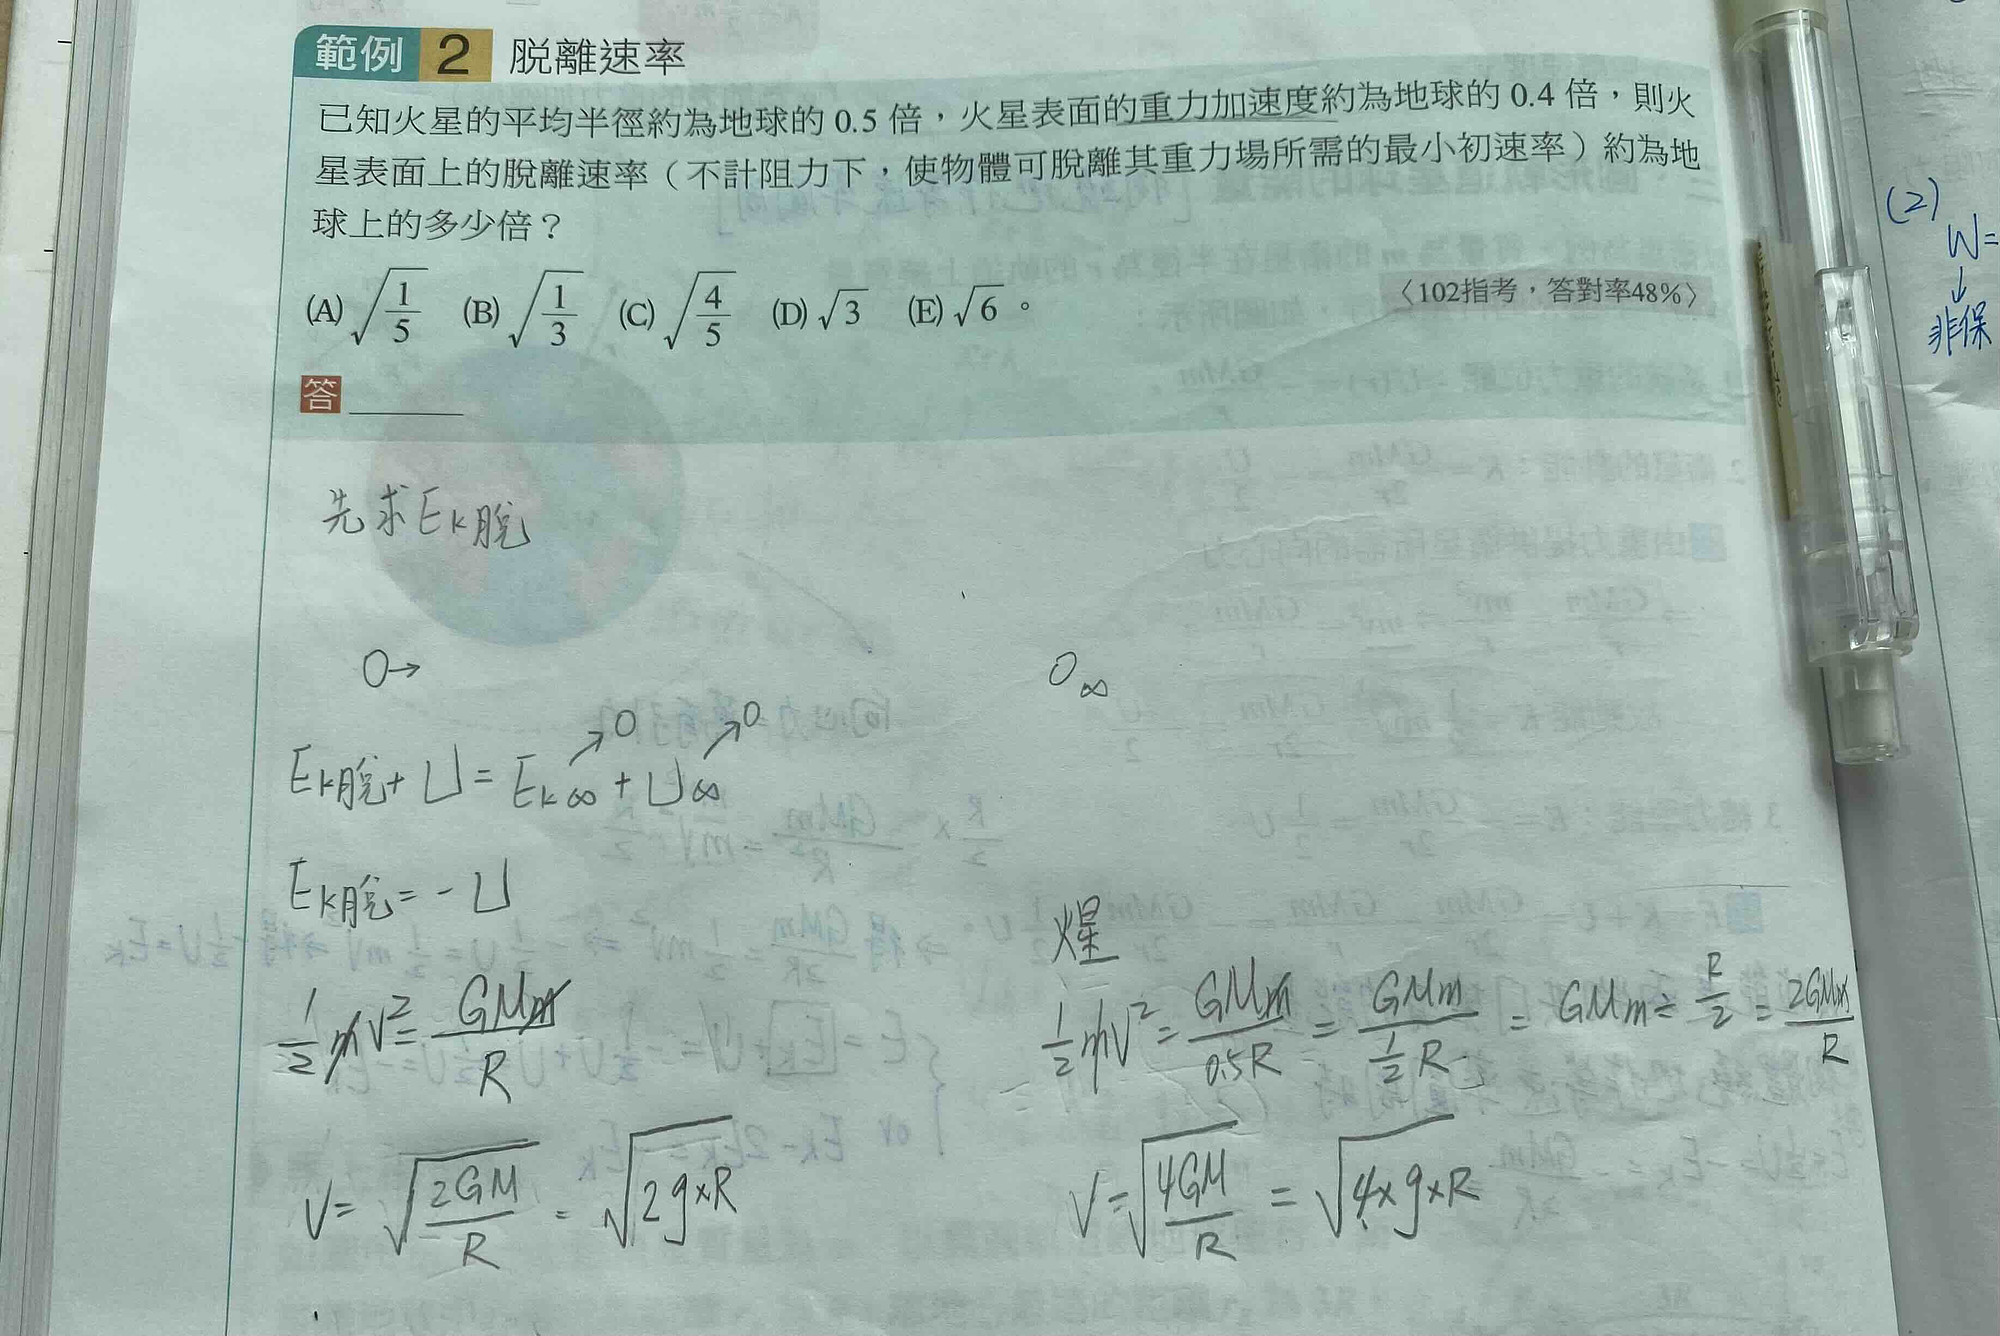 範例 2 脫離速率
已知火星的平均半徑約為地球的 0.5 倍，火星表面的重力加速度約為地球的 0.4 倍，則火
星表面上的脫離速率（不計阻力下，使物體可脫離其重力場所需的最小初速率）約為地
球上的多少倍？
(A) √(1/5) (B) √(1/3) (C) √(4/5) (D) √3 (E) √6。
〈102指考，答對率48%〉
答
先求Ek脫
O→
O∞
Ek脫+U=Ek∞+U∞
0 0
Ek脫=-U
½mv²=GMm/R
V=√(2GM/R)=√(2g×R)
火星
½mV²=GMm/0.5R=GMm/(½R)=GMm÷R/2=2GMm/R
V=√(4GM/R)=√(4×g×R)
(2)
W=
↓
非保